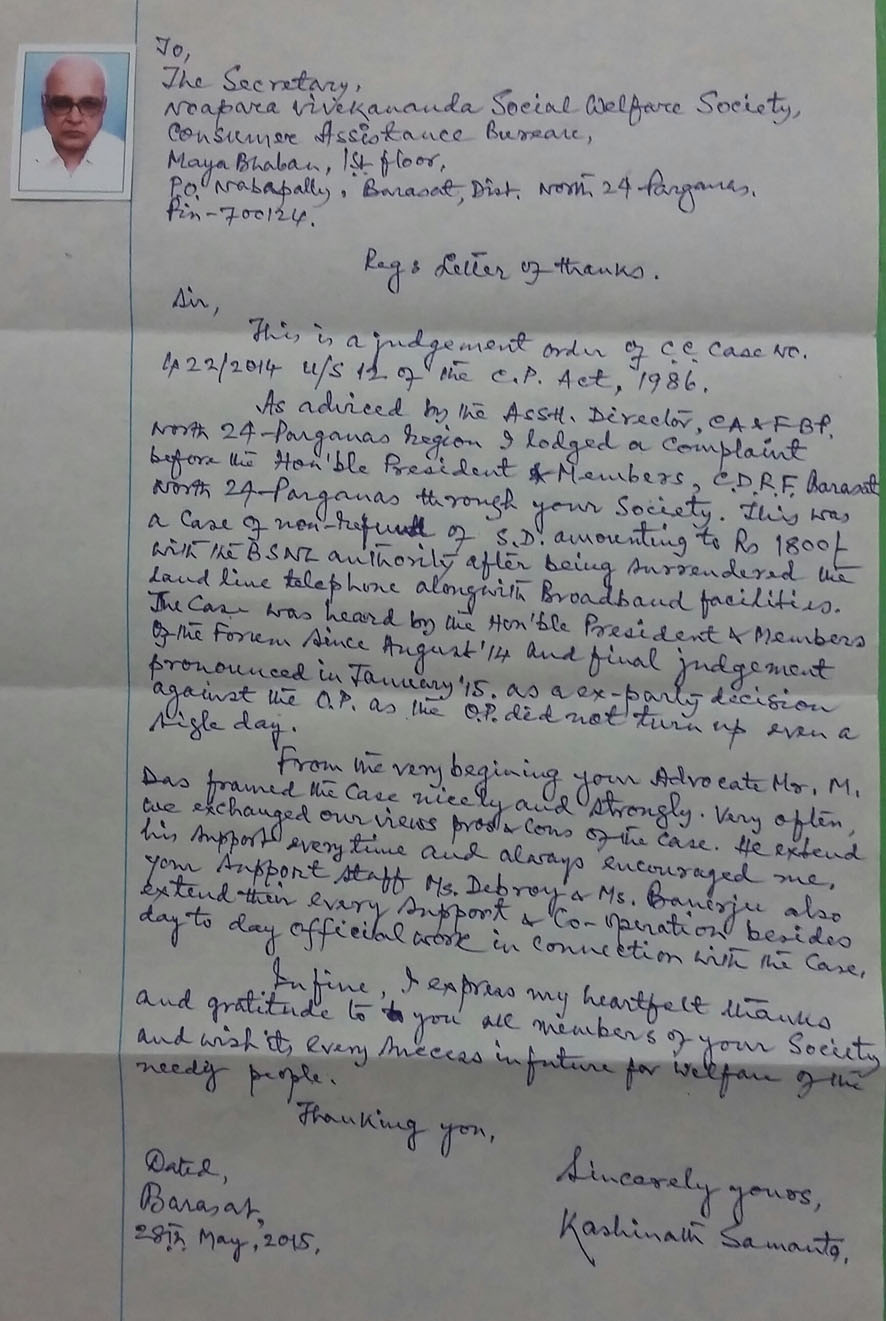 To,
The Secretary,
Noapara Vivekananda Social Welfare Society,
Consumer Assistance Bureau,
Maya Bhaban, 1st floor,
PO Nabapally, Barasat, Dist. North 24 Parganas.
Pin-700124.
Reg: Letter of thanks.
Sir,
This is a judgement order of C.C. Case No.
422/2014 U/S 12 of the C.P. Act, 1986.
As adviced by the Asstt. Director, CA & FBP,
North 24-Parganas Region I lodged a complaint
before the Hon'ble President & Members, C.D.R.F. Barasat
North 24-Parganas through your Society. This was
a case of non-refund of S.D. amounting to Rs 1800/-
with the BSNL authority after being surrendered the
Land line telephone alongwith Broadband facilities.
The Case was heard by the Hon'ble President & Members
of the Forum since August'14 and final judgement
pronounced in January'15. as a ex-party decision
against the O.P. as the O.P. did not turn up even a
sigle day.
From the very begining your Advocate Mr. M.
Das framed the case nicely and strongly. Very often,
we exchanged our views pros & cons of the case. He extend
his support everytime and always encouraged me,
your support staff Ms. Debroy & Ms. Banerjee also
extend their every support & Co-operation besides
day to day official work in connection with the case,
In fine, I express my heartfelt thanks
and gratitude to you all members of your Society
and wish its every success in future for welfare of the
needy people.
Thanking you,
Dated,
Sincerely yours,
Barasat,
Kashinath Samanta,
28th May, 2015,